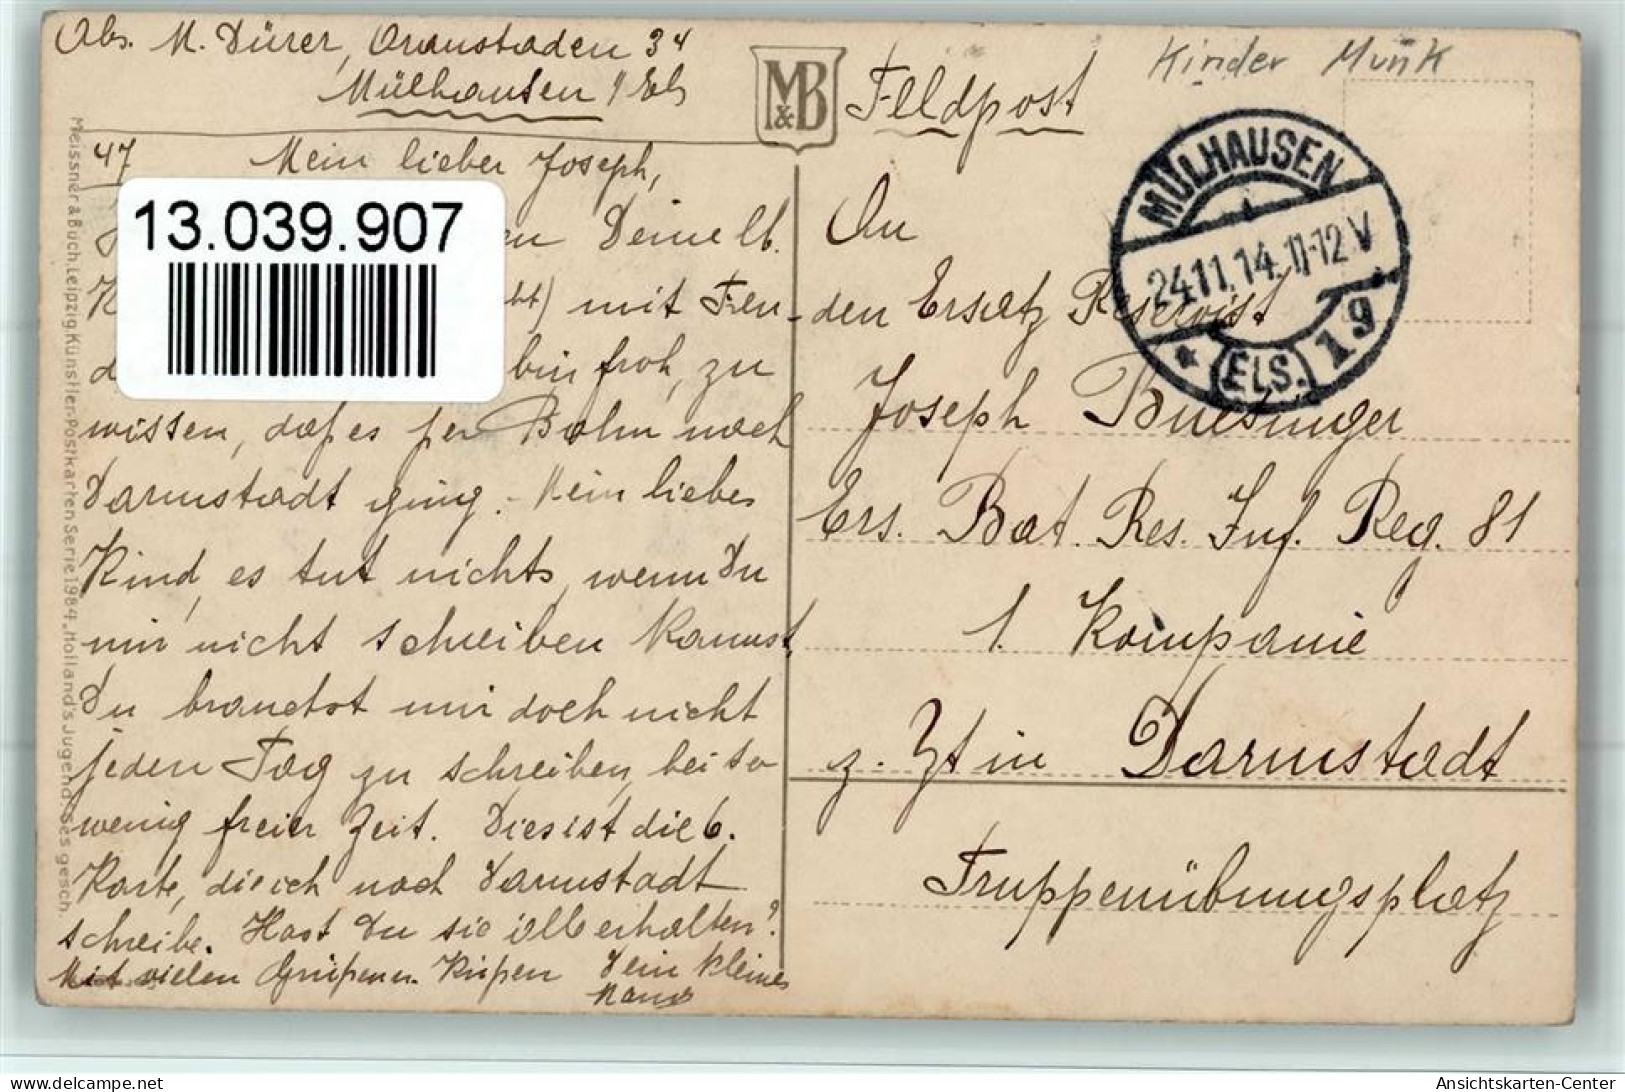 Abs. M. Dürer,
Mülhausen i/Els
M&B
Feldpost
Kinder Munk
MÜLHAUSEN
24.11.14.11-12V
* (ELS.) 19
47 Mein lieber Joseph,
13.039.907
Deine lb.
mit Freu-
bin froh, zu
wissen, daß es per Bahn nach
Darmstadt ging. - Mein liebes
Kind, es tut nichts, wenn Du
mir nicht schreiben kannst,
Du brauchst mir doch nicht
jeden Tag zu schreiben, bei so
wenig freier Zeit. Dies ist die 6.
Karte, die ich nach Darmstadt
schreibe. Hast Du sie alle erhalten?
Mit vielen Grüßen u. Küßen Dein kleines
An
den Ersatz Reservist
Joseph
Ers. Bat. Res. Inf. Reg. 81
1. Kompanie
z. Zt in Darmstadt
Truppenübungsplatz
Meissner & Buch Leipzig Künstler-Postkarten Serie 1984 „Holland's Jugend" Ges. gesch.
Ansichtskarten-Center